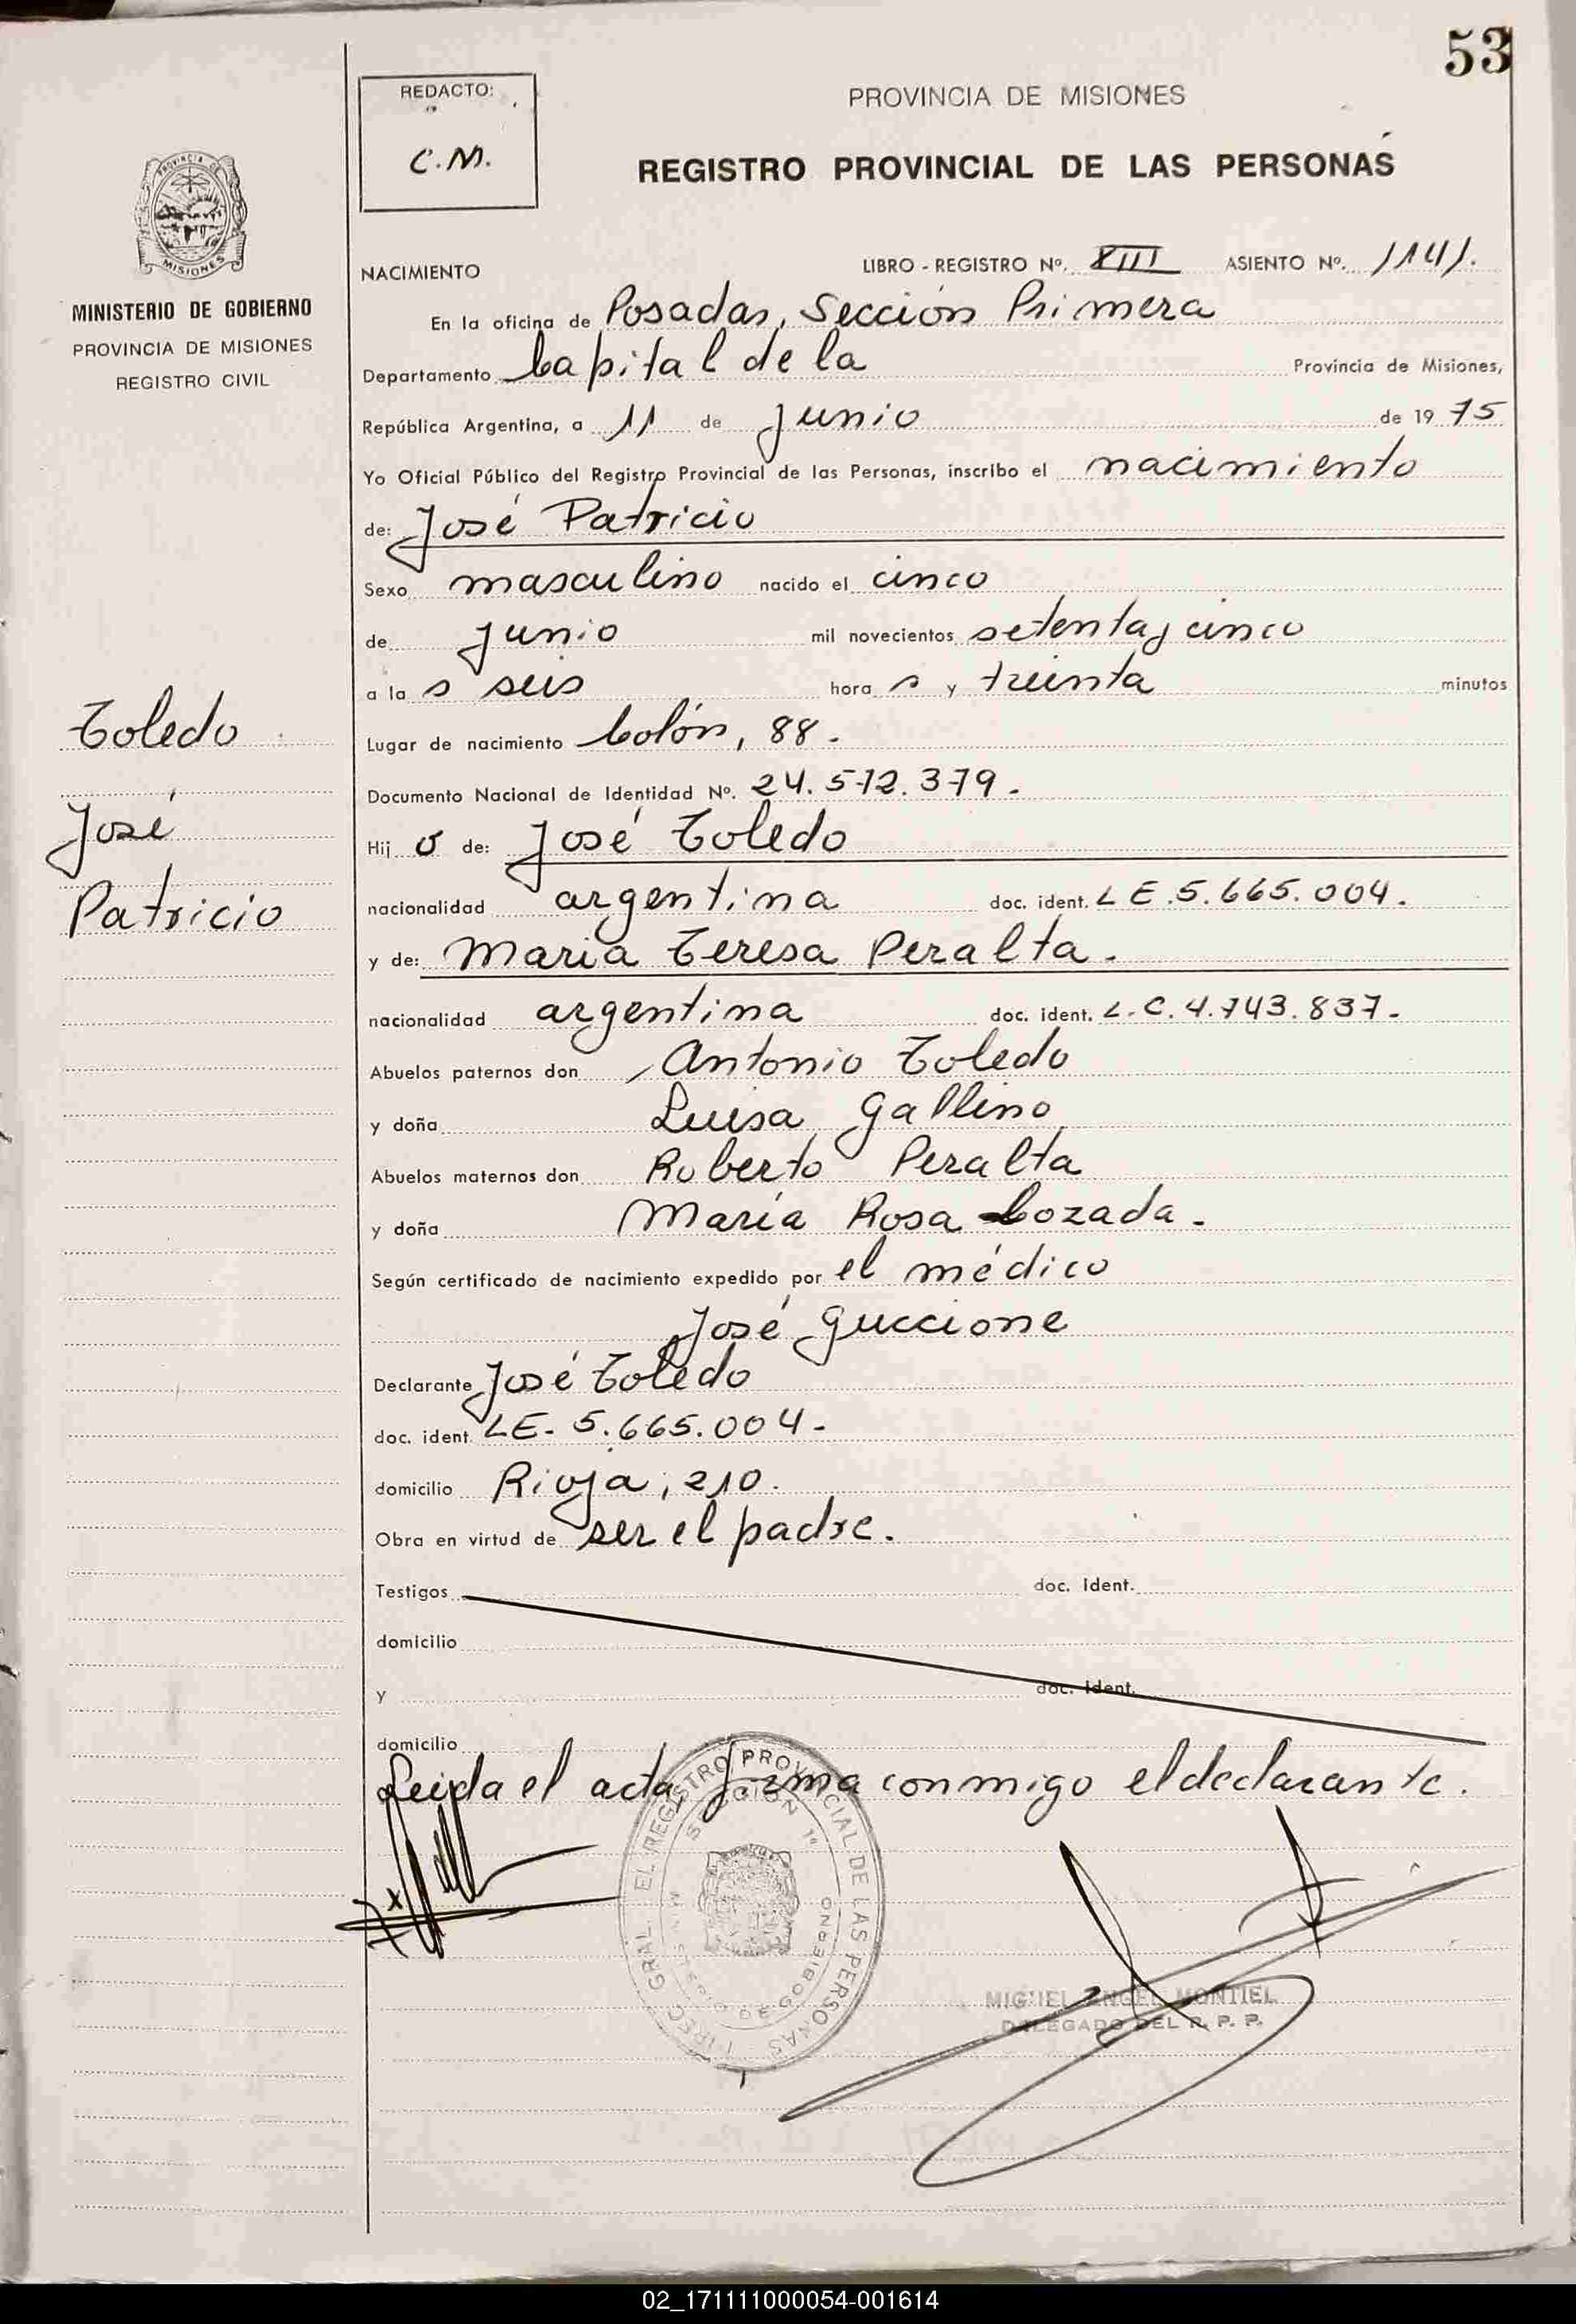 53
REDACTO:
C.M.
PROVINCIA DE MISIONES
REGISTRO PROVINCIAL DE LAS PERSONAS
MISIONES
MINISTERIO DE GOBIERNO
PROVINCIA DE MISIONES
REGISTRO CIVIL
NACIMIENTO LIBRO - REGISTRO Nº. XIII ASIENTO Nº. 1141.
En la oficina de Posadas, Sección Primera
Departamento Capital de la Provincia de Misiones,
República Argentina, a 11 de Junio de 1975
Yo Oficial Público del Registro Provincial de las Personas, inscribo el nacimiento
de: José Patricio
Sexo masculino nacido el cinco
de Junio mil novecientos setenta y cinco
a la s seis hora s y treinta minutos
Toledo
José
Patricio
Lugar de nacimiento Colón, 88.
Documento Nacional de Identidad Nº. 24.572.379.
Hij o de: José Toledo
nacionalidad argentina doc. ident. LE.5.665.004.
y de: Maria Teresa Peralta.
nacionalidad argentina doc. ident. L.C. 4.743.837.
Abuelos paternos don Antonio Toledo
y doña Luisa Gallino
Abuelos maternos don Roberto Peralta
y doña María Rosa Lozada.
Según certificado de nacimiento expedido por el médico
José Guccione
Declarante José Toledo
doc. ident. LE- 5.665.004-
domicilio Rioja, 210.
Obra en virtud de ser el padre.
Testigos doc. Ident.
domicilio
y doc. Ident.
domicilio
Leida el acta, firma conmigo el declarante.
DIREC. GRAL. EL REGISTRO PROVINCIAL DE LAS PERSONAS
SECCION 1ª
DE GOBIERNO
MIGUEL ANGEL MONTIEL
DELEGADO DEL R. P. P.
02_171111000054-001614